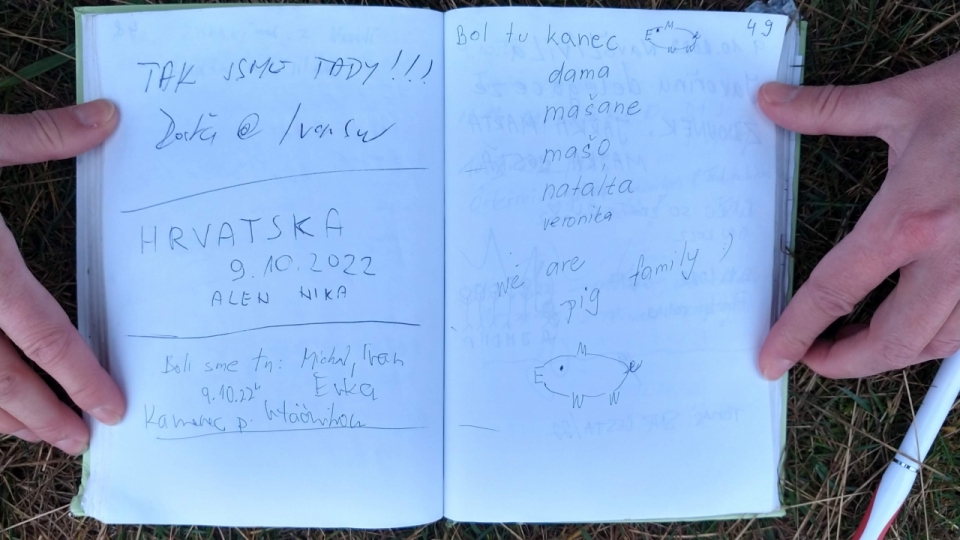 TAK JSME TADY!!!
@
HRVATSKA
9.10.2022
ALEN NIKA
Boli sme tu: Michal, Ivan
9.10.22 Evka
Kamenec p.
49
Bol tu kanec E M W W
dama
mašane
mašo
natalta
veronika
we are family
pig
M
E
W W